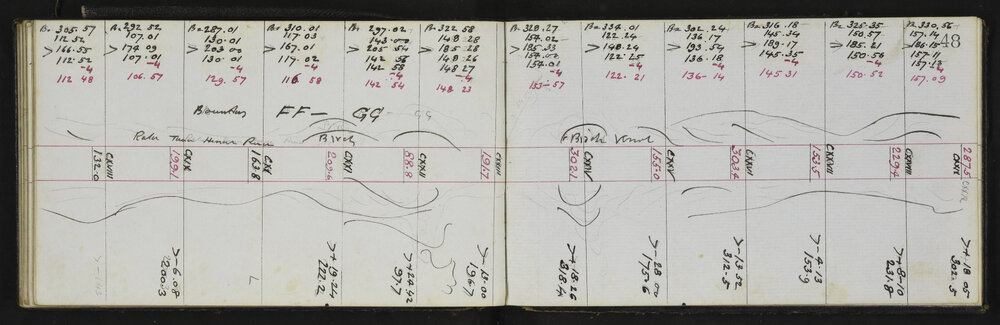 B= 305.57
112.52
> 166.55
112.52
-4
112 48
B= 292 52
107.01
> 174 09
107.01
-4
106.57
B= 287.01
130.01
> 203 00
130 01
-4
129.57
B= 310.01
117.03
> 167.01
117.02
-4
116 58
B= 297.02
143.00
> 205 54
142 56
142 58
-4
142 54
B= 322.58
148.28
> 185.28
148.26
148 27
-4
148 23
B= 328.27
154.02
> 185.33
154.00
154.01
-4
153-57
B= 334.01
122.24
> 148.24
122.25
-4
122.21
B= 302.24
136.17
> 193.54
136.18
-4
136-14
B= 316.18
145.34
> 189.17
145.35
-4
145.31
B= 325.35
150.57
> 185.21
150.56
-4
150.52
B= 330.56
157.14
> 186.15
157.11
-4
157.09
48
FF — GG
Birch
Birch Knol
132.0
CXVIII
199.1
CXIX
163.8
CXX
209.6
CXXI
88.8
CXXII
191.7
CXXIII
302.1
CXXIV
155.0
CXXV
303.4
CXXVI
153.5
CXXVII
229.4
CXXVIII
287.5
CXXIX
CXXX
>-6.08
200.3
L
>+19.24
222.2
>+24.42
97.7
>-13.00
196.7
>+18.26
318.4
>-28.00
175.6
>-13.52
312.5
>-4.13
153.9
>+8-10
231.8
>+18 05
302.5